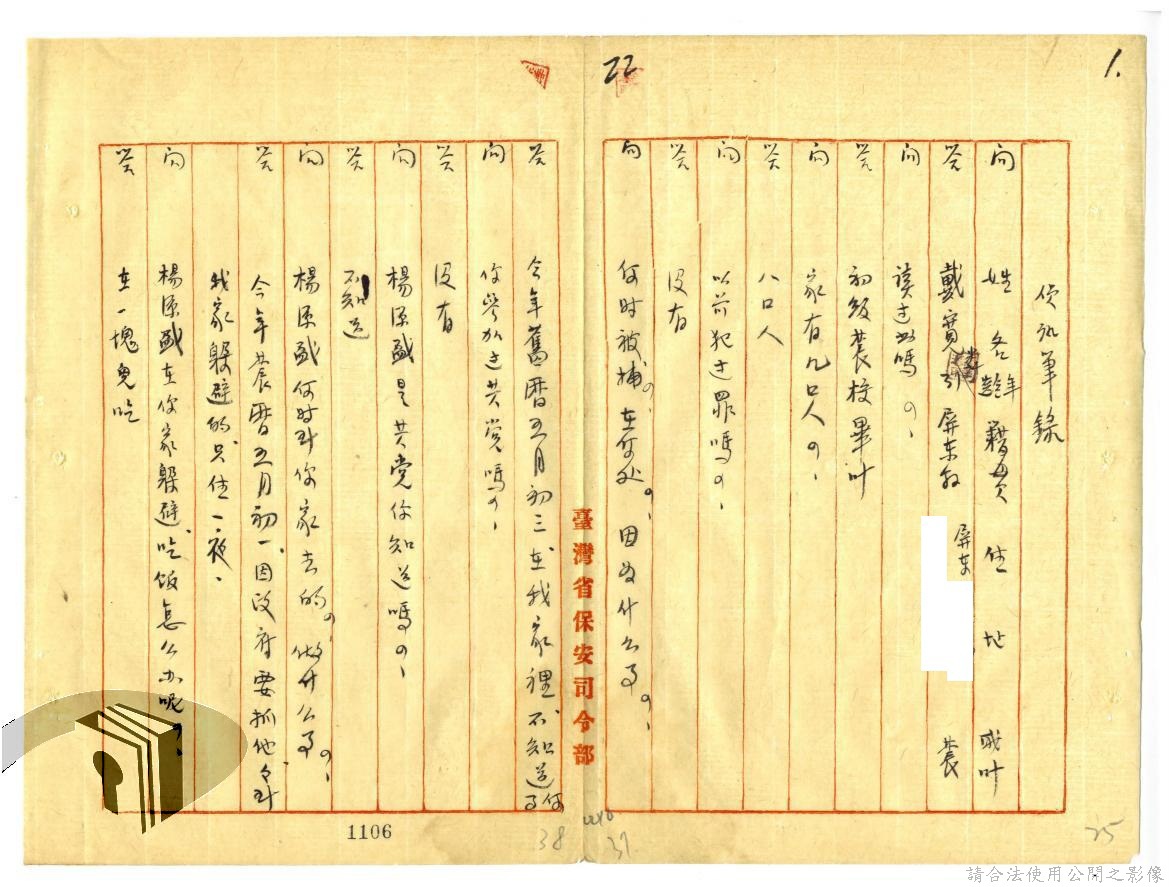 22
1.
偵訊筆錄
問 姓名 年齡 籍貫 住址 职叶
答 戴寶 屏东 屏东 農
問 读过书嗎?
答 初级農校畢叶
問 家有几口人?
答 八口人
問 以前犯过罪嗎?
答 沒有
問 何时被捕?在何处?因为什么事?
臺灣省保安司令部
答 今年舊曆五月初三在我家裡、不知道何事
問 你參加过共党嗎?
答 沒有
問 楊 是共党你知道嗎?
答 不知道
問 楊 何时到你家去的?做什么事?
答 今年農曆五月初一、因政府要抓他、他到
我家躲避的、只住一夜、
問 楊 在你家躲避、吃饭怎么办呢?
答 在一塊兒吃
1106
38
37
25
請合法使用公開之影像